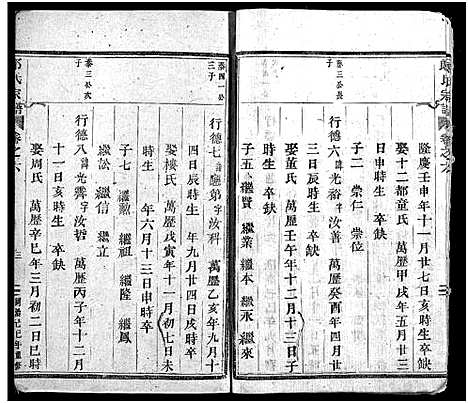 隆慶壬申年十一月廿七日亥時生 卒缺
娶十二都童氏 萬歷甲戌年五月廿三
日申時生 卒缺
子二 崇仁 崇位
泰三公長子
行德六 諱光裕 字汝善 萬歷癸酉年四月廿
三日辰時生 卒缺
娶董氏 萬歷壬午年十二月十三日子
時生 卒缺
子五 繼賢 繼業 繼本 繼永 繼來
泰四一公三子
行德七 字汝科 萬歷乙亥年九月十
四日辰時生 卒缺
娶楼氏 萬歷戊寅年十一月初七日未
時生 年六月十三日申時卒
子七 繼敵 繼祖 繼隆 繼鳳
繼訟 繼信 繼立
泰三公次子
行德八 諱光霽 字汝哲 萬歷丙子年十二月
十一日亥時生 卒缺
娶周氏 萬歷辛巳年三月初二日巳時
氏家譜 卷之六
三